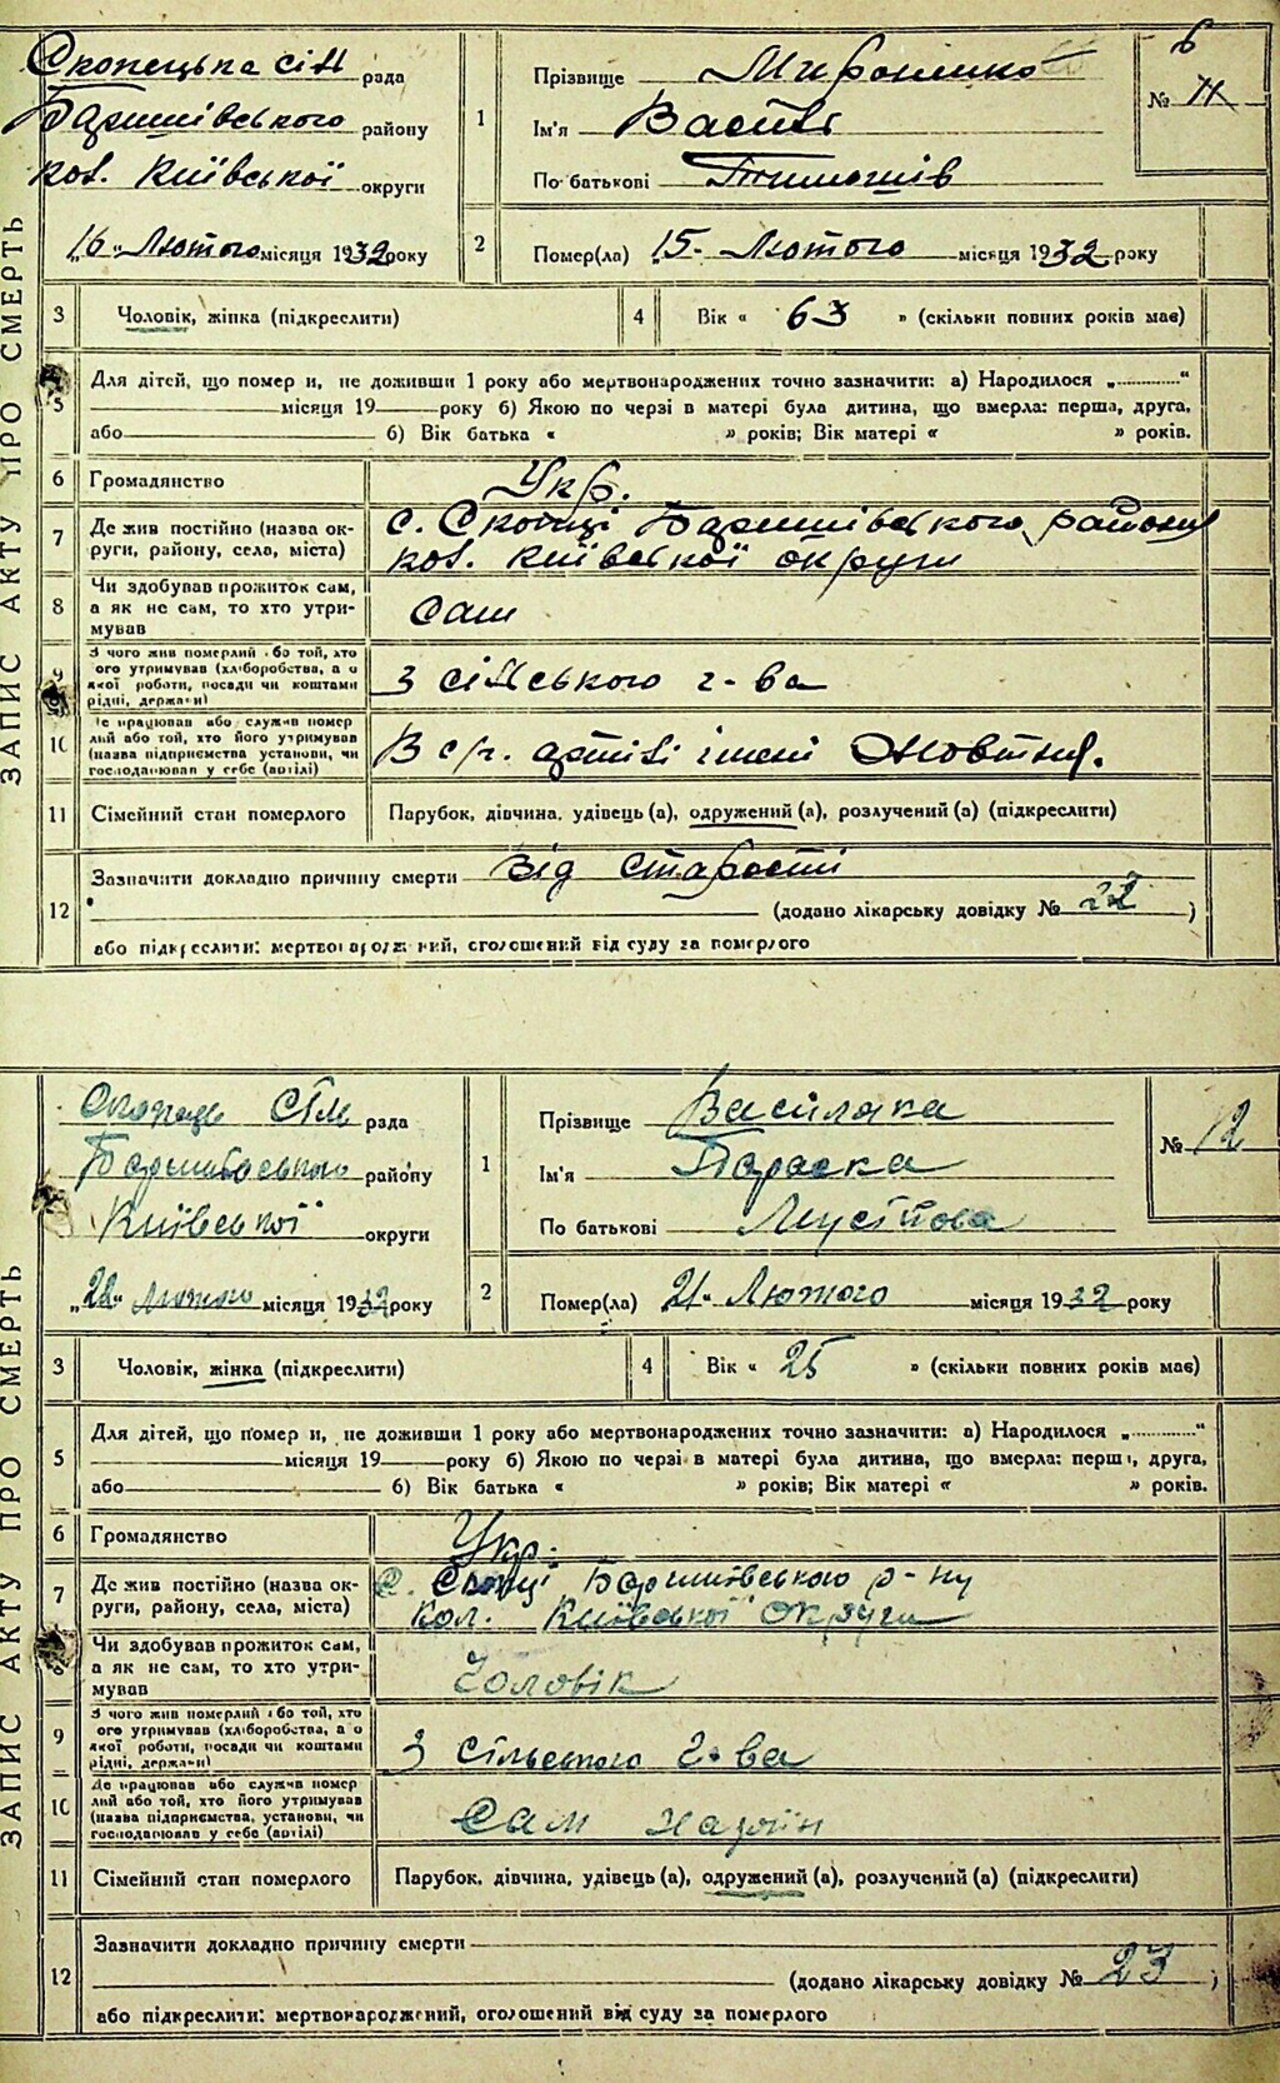 ЗАПИС АКТУ ПРО СМЕРТЬ
Скопецька сіл рада
Баришівського району
кол. Київської округи
„16“ Лютого місяця 1932 року
1
Прізвище Мирошнико
Ім'я Василь
По батькові Тимошів
№ 11
6
2
Помер(ла) „15“ Лютого місяця 1932 року
3 Чоловік, жінка (підкреслити)
4 Вік « 63 » (скільки повних років має)
5
Для дітей, що помер и, не доживши 1 року або мертвонароджених точно зазначити: а) Народилося „............“
місяця 19 року б) Якою по черзі в матері була дитина, що вмерла: перша, друга,
або б) Вік батька « » років; Вік матері « » років.
6 Громадянство Укр.
7 Де жив постійно (назва округи, району, села, міста)
с. Скопці Баришівського району
кол. Київської округи
8 Чи здобував прожиток сам,
а як не сам, то хто утри-
мував
сам
9 З чого жив померлий або той, хто
ого утримував (хліборобства, а о
якої роботи, посади чи коштами
рідні, держави)
З сільського г-ва
10 Де працював або служив помер
лий або той, хто його утримував
(назва підприємства установи, чи
господарював у себе (артілі)
В с/г. артілі імені Жовтня.
11 Сімейний стан померлого
Парубок, дівчина, удівець (а), одружений (а), розлучений (а) (підкреслити)
12 Зазначити докладно причину смерти від старости
(додано лікарську довідку № 22 )
або підкреслити: мертвонароджений, оголошений від суду за померлого
ЗАПИС АКТУ ПРО СМЕРТЬ
Скопець Сіл рада
Баришівського району
Київської округи
„22“ Лютого місяця 1932 року
1
Прізвище Василака
Ім'я Параска
По батькові
№ 12
2
Помер(ла) 21 „ Лютого місяця 1932 року
3 Чоловік, жінка (підкреслити)
4 Вік « 25 » (скільки повних років має)
5
Для дітей, що помер и, не доживши 1 року або мертвонароджених точно зазначити: а) Народилося „............“
місяця 19 року б) Якою по черзі в матері була дитина, що вмерла: перша, друга,
або б) Вік батька « » років; Вік матері « » років.
6 Громадянство Укр.
7 Де жив постійно (назва округи, району, села, міста)
с. Скопці Баришівського р-ну
кол. Київської округи
8 Чи здобував прожиток сам,
а як не сам, то хто утри-
мував
Чоловік
9 З чого жив померлий або той, хто
ого утримував (хліборобства, а о
якої роботи, посади чи коштами
рідні, держави)
З сільського г-ва
10 Де працював або служив помер
лий або той, хто його утримував
(назва підприємства, установи, чи
господарював у себе (артілі)
Сам
11 Сімейний стан померлого
Парубок, дівчина, удівець (а), одружений (а), розлучений (а) (підкреслити)
12 Зазначити докладно причину смерти
(додано лікарську довідку № 23 )
або підкреслити: мертвонароджений, оголошений від суду за померлого